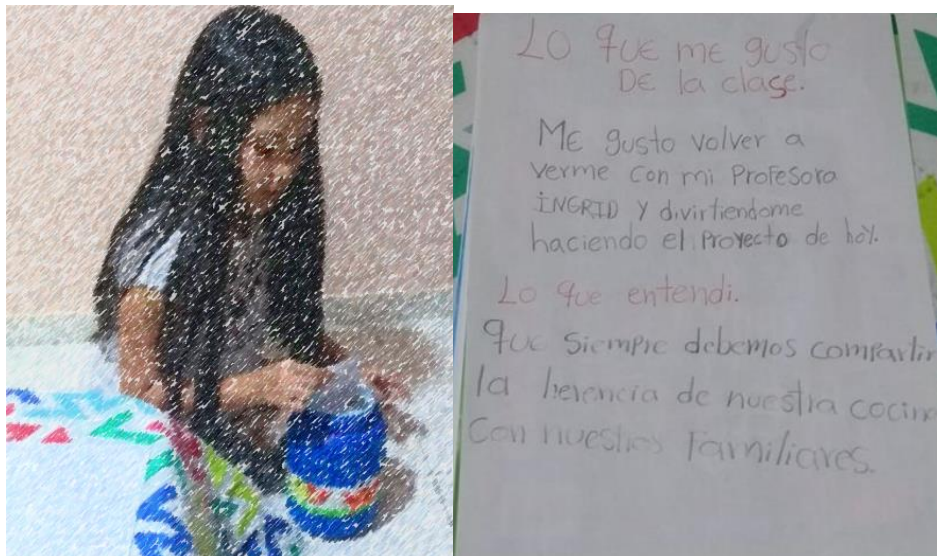 Lo que me gusto
De la clase.
Me gusto volver a
verme con mi Profesora
INGRID y divirtiendome
haciendo el Proyecto de hoy.
Lo que entendi.
que siempre debemos compartir
la herencia de nuestra cocina
con nuestros Familiares.